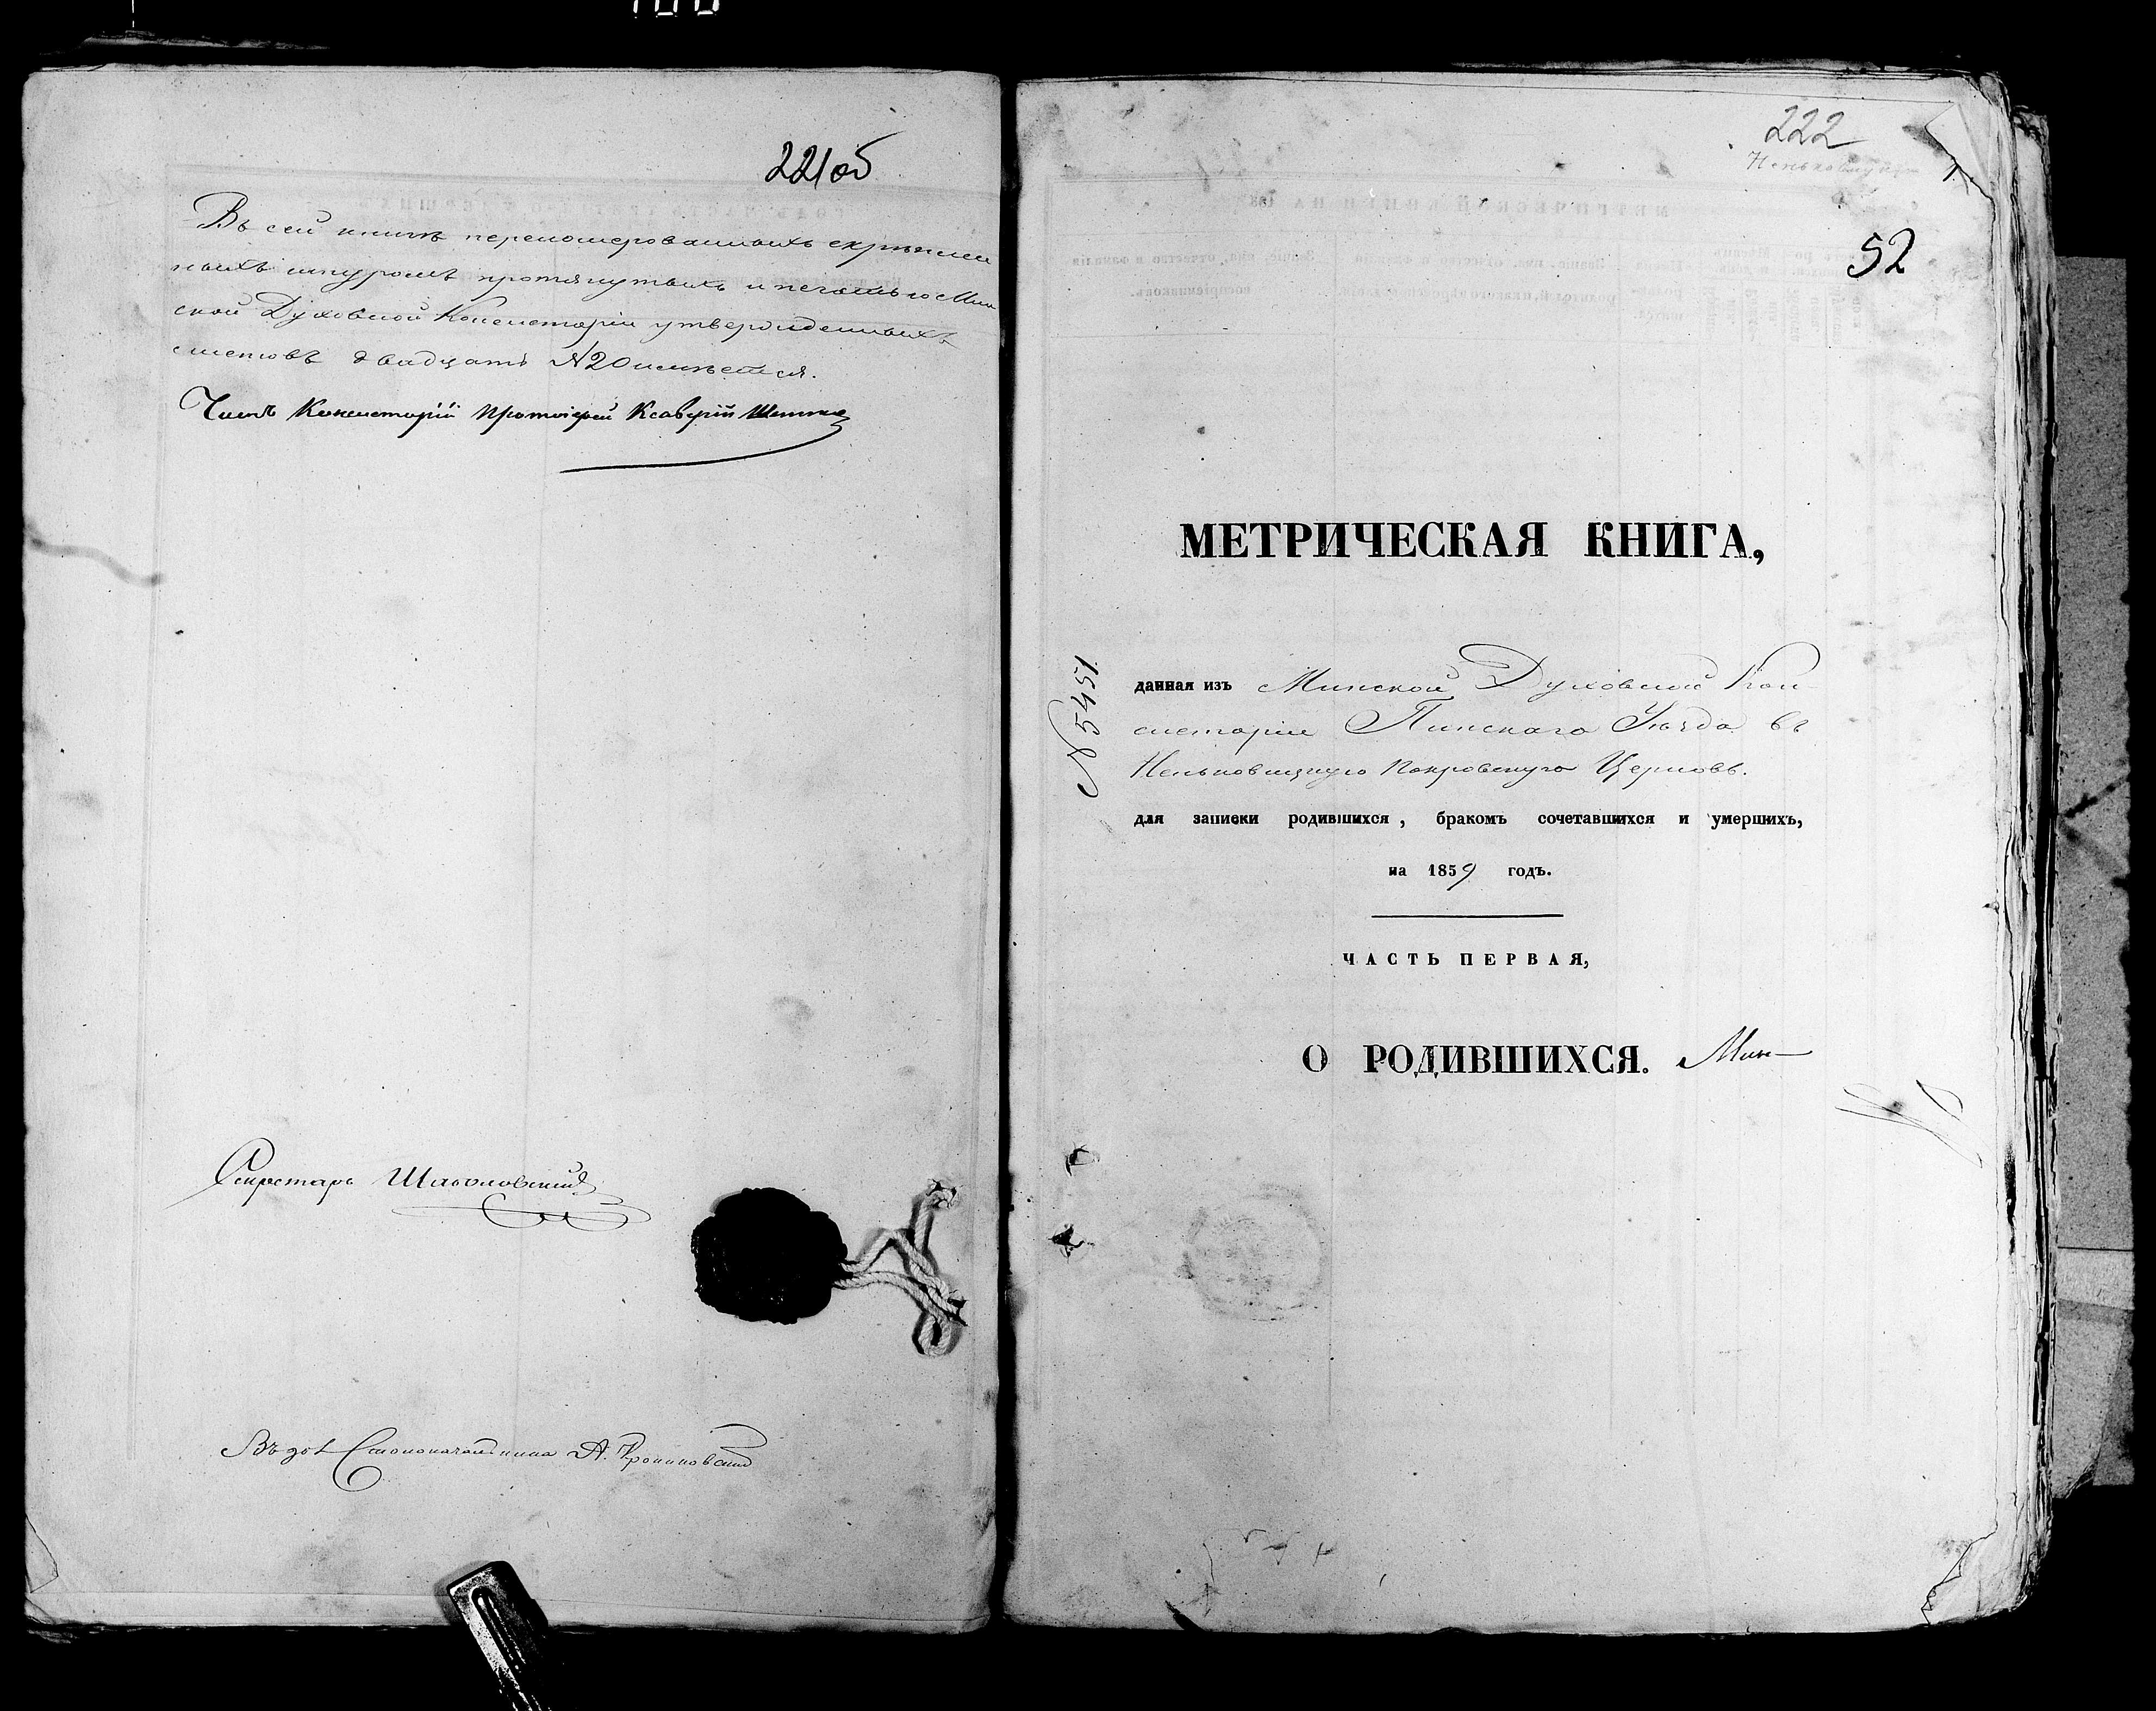 221об
Въ сей книгѣ перенумерованныхъ скрѣплен
ныхъ шнуромъ протянутыхъ и печатью Мин
ской Духовной Консисторіи утвержденныхъ
листовъ двадцать №20 имѣется.
Членъ Консисторіи Протоіерей Ксаверій
Секретарь
Столоначальника А.
222
52
МЕТРИЧЕСКАЯ КНИГА,
№ 5451
данная изъ Минской Духовной Кон-
систоріи Пинскаго Уѣзда въ
Неньковицкую Покровскую Церковь.
для записки родившихся, бракомъ сочетавшихся и умершихъ,
на 1859 годъ.
ЧАСТЬ ПЕРВАЯ,
О РОДИВШИХСЯ. Мин-